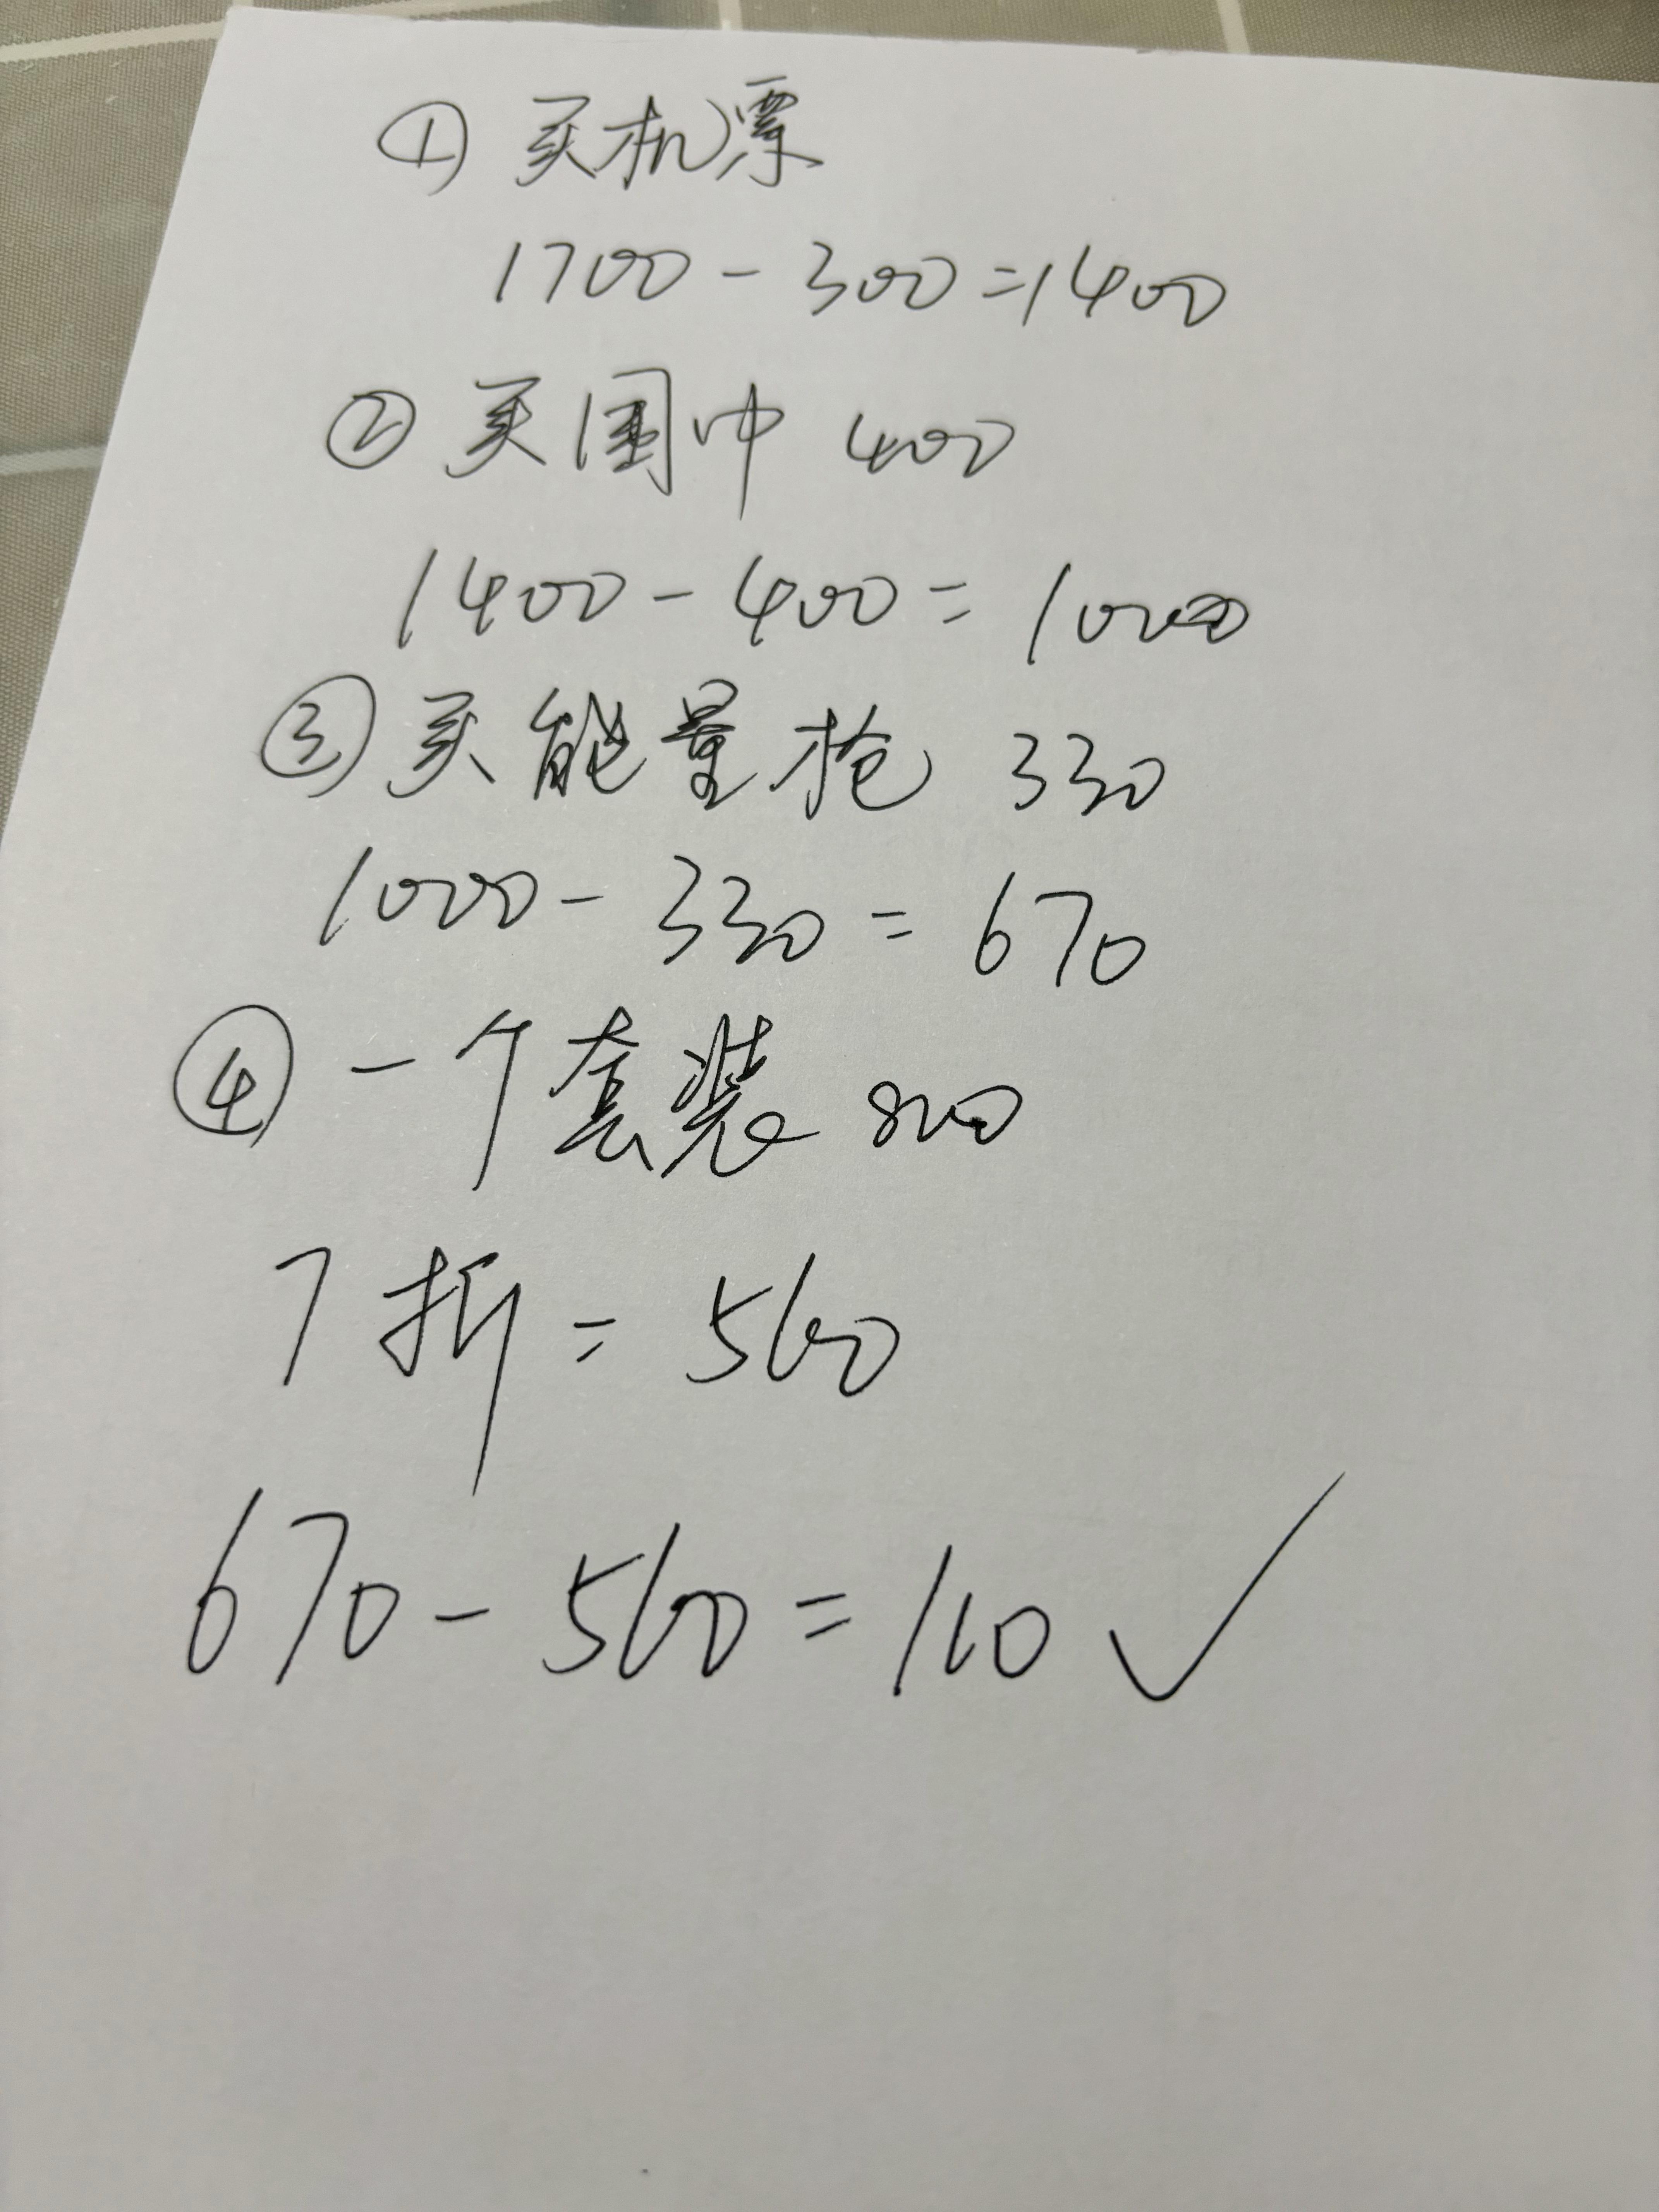 ① 买机票
1700-300=1400
② 买围巾 400
1400-400=1000
③ 买能量枪 330
1000-330=670
④ 一个套装 800
7折=560
670-560=110✓